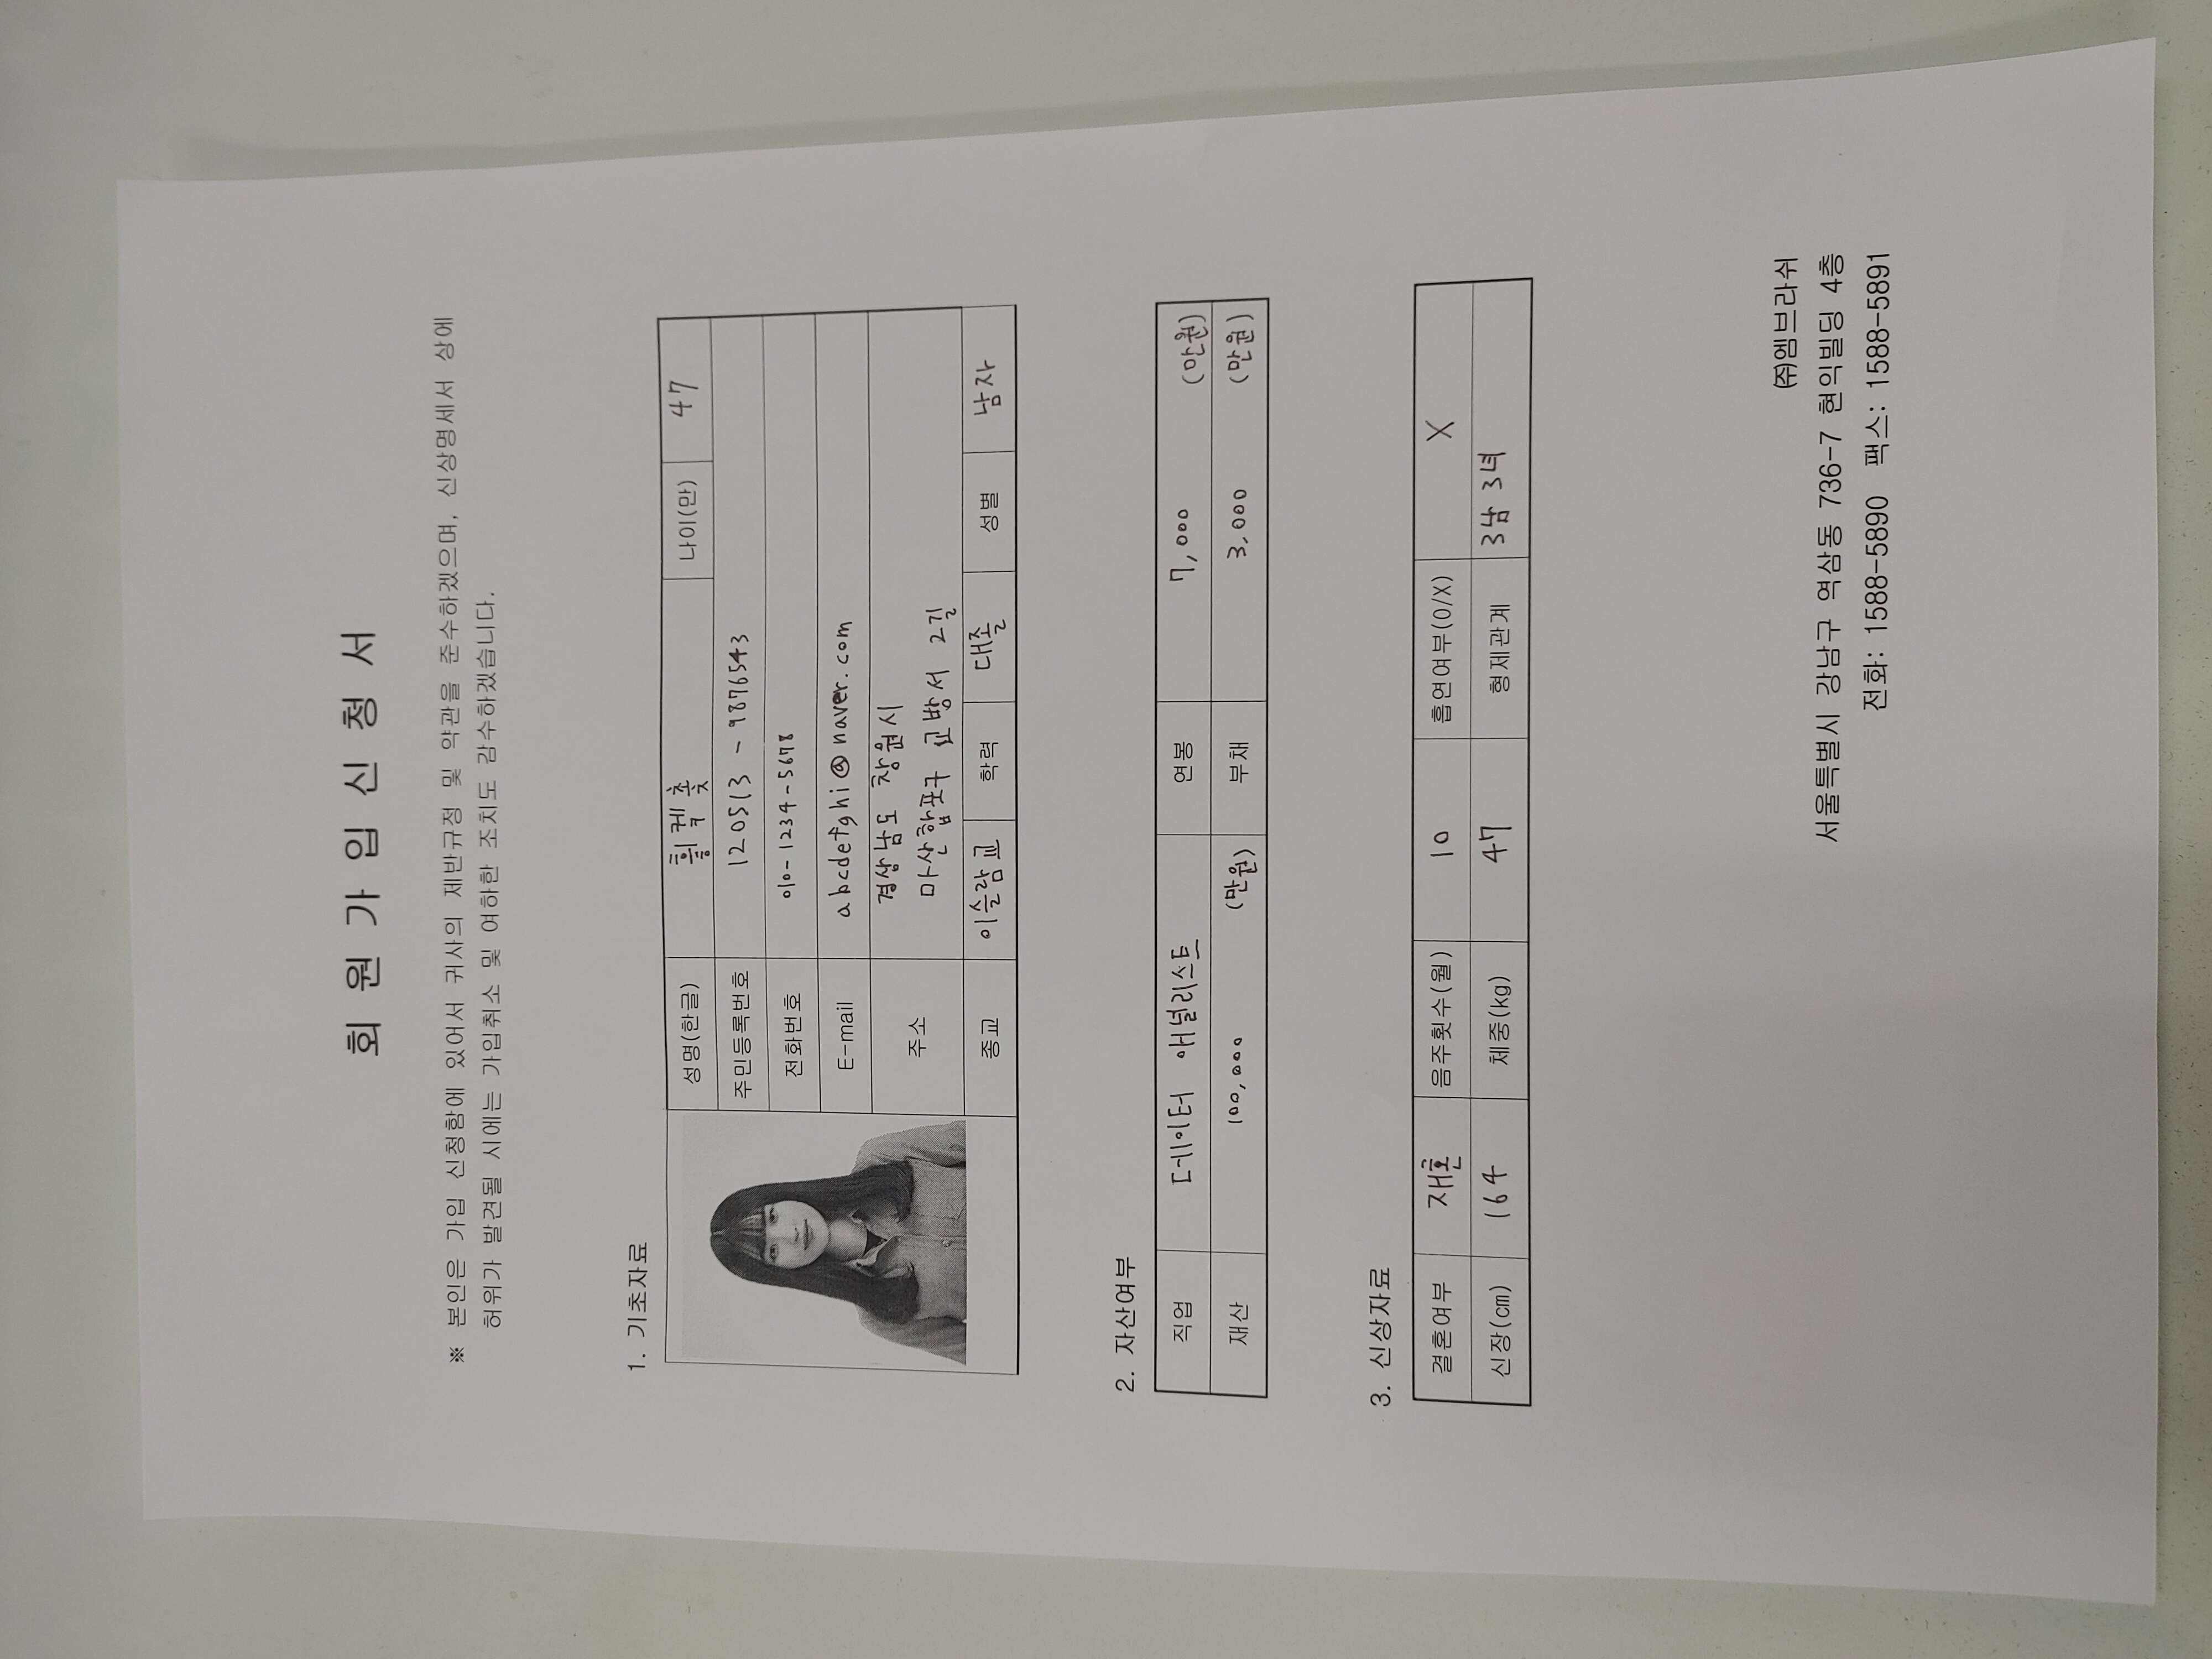 회 원 가 입 신 청 서
※ 본인은 가입 신청함에 있어서 귀사의 제반규정 및 약관을 준수하겠으며, 신상명세서 상에
허위가 발견될 시에는 가입취소 및 여하한 조치도 감수하겠습니다.
1. 기초자료
성명(한글) 나이(만) 47
주민등록번호 120513 - 9876543
전화번호 010-1234-5678
E-mail abcdefghi@naver.com
주소 경상남도 창원시
마산합포구 교방서 2길
종교 이슬람교 학력 대졸 성별 남자
2. 자산여부
직업 데이터 애널리스트 연봉 7,000 (만원)
재산 100,000 (만원) 부채 3,000 (만원)
3. 신상자료
결혼여부 재혼 음주횟수(월) 10 흡연여부(O/X) X
신장(cm) 164 체중(kg) 47 형제관계 3남 3녀
㈜엠브라쉬
서울특별시 강남구 역삼동 736-7 현익빌딩 4층
전화: 1588-5890 팩스: 1588-5891